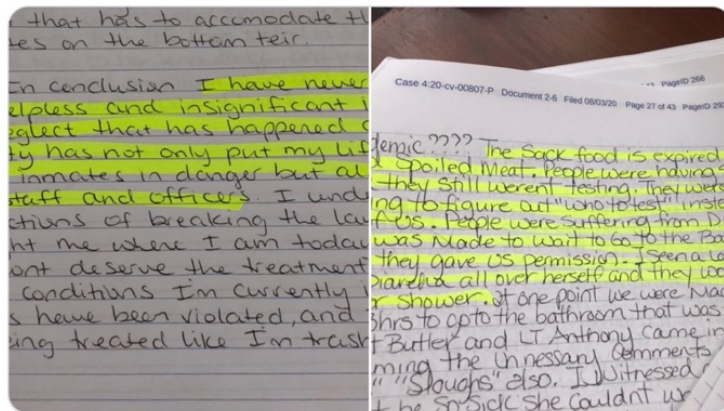 that has to accomodate th
tes on the bottom teir.
In conclusion I have never
elpless and insignificant
eglect that has happened
ty has not only put my lif
inmates in danger but al
staff and officers. I und
ctions of breaking the la
ht me where I am today
ont deserve the treatment
conditions I'm currently
s have been violated, and
ing treated like I'm trash
PageID 266
Case 4:20-cv-00807-P Document 2-6 Filed 08/03/20 Page 27 of 43 PageID 29
demic???? The Sack food is expired
Spoiled Meat. People were having
they still werent testing. They wer
ing to figure out "who to test" insi
f us. People were suffering from D
was made to wait to go to the Ba
they gave us permission. I seen a la
Diarehia all over herself and they wo
r shower. At one point we were Ma
hrs to go to the bathroom that was
t Butler and LT Anthony came in
ming the Unnessary Comments
" "Sloughs" also. I Witnessed
t be so sick she couldnt w